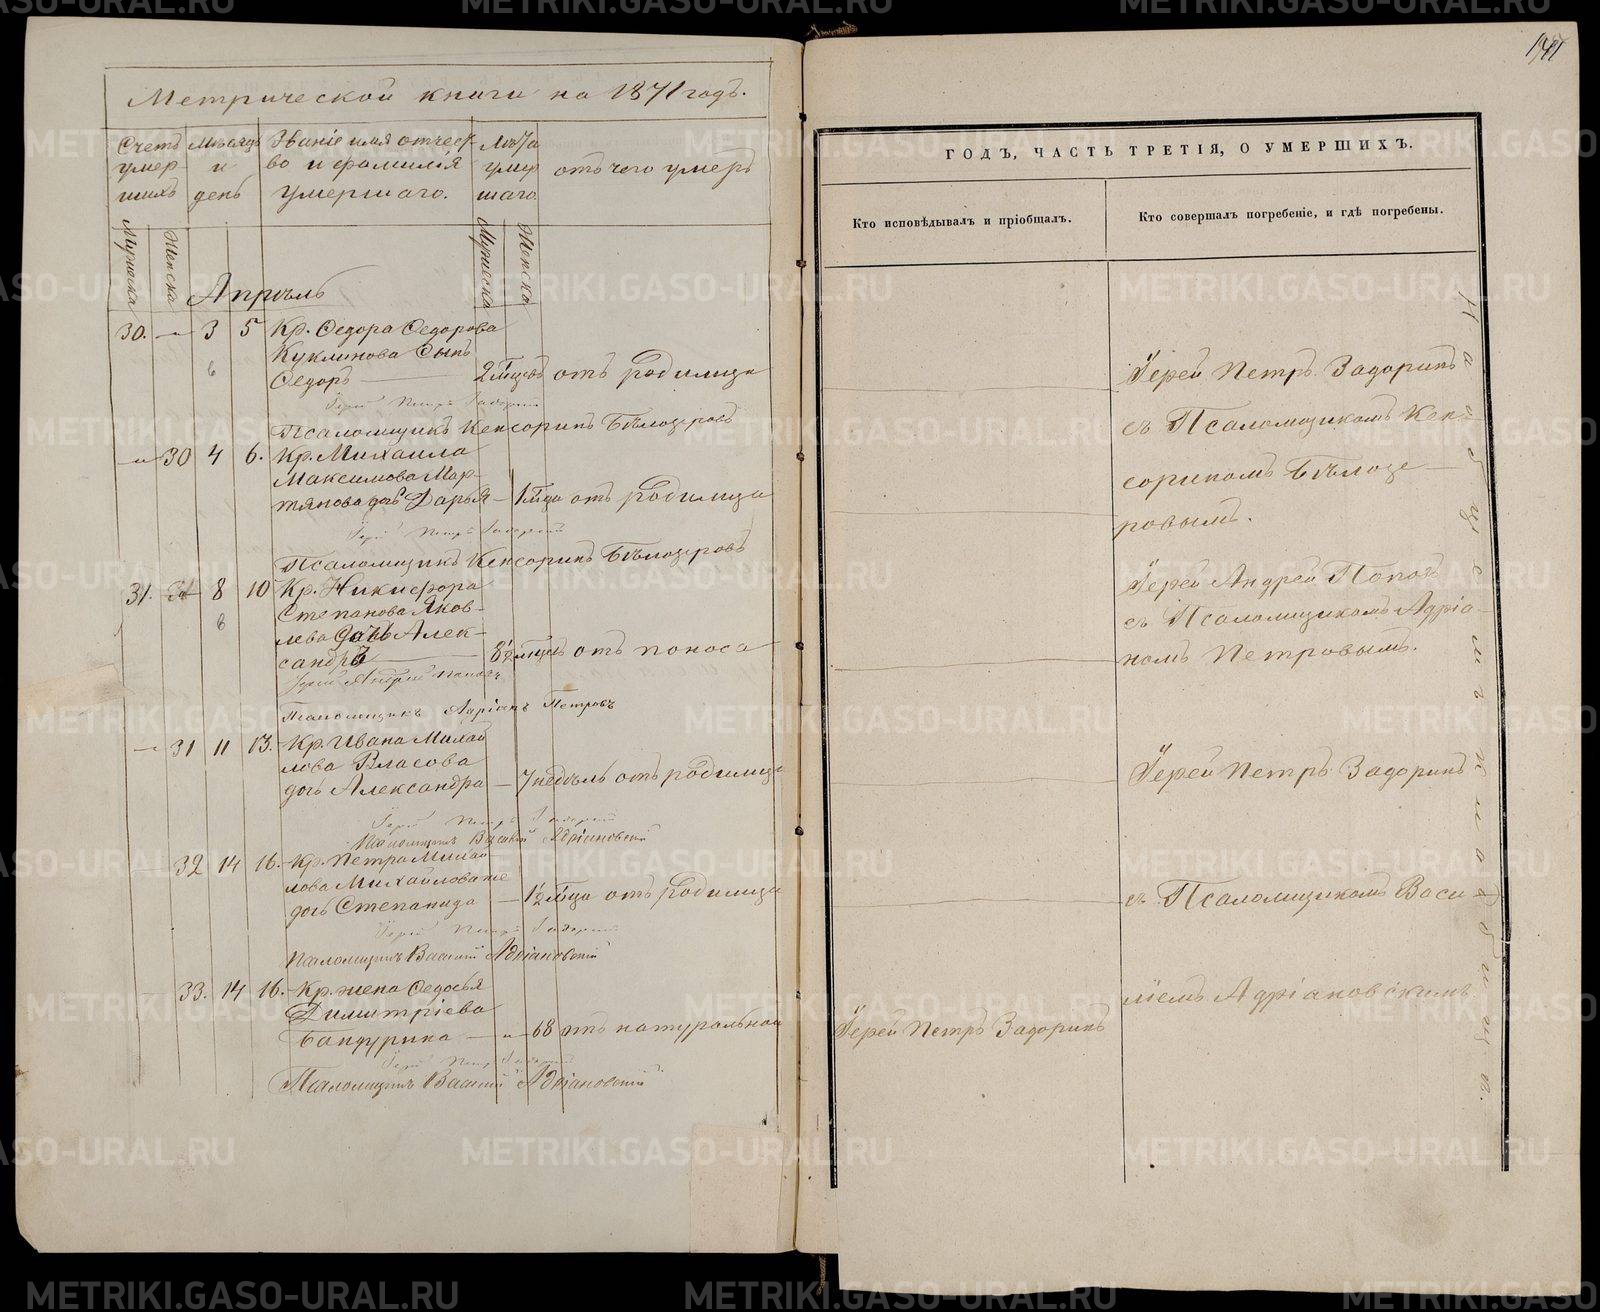 Метрической книги на 1871 годъ.
Счетъ умер- шихъ
Мѣсяцъ и день
Званіе имя отчест- во и фамилія умершаго.
Лѣта умер шаго.
отъ чего умеръ
Мужеска
Женска
Мужеска
Женска
Апрѣль
30. — 3 5 Кр. Ѳедора Ѳедорова
Куклинова Сынъ
6 Ѳедоръ — 2 м͠цевъ отъ родимца
Іерей Петръ Задоринъ
Псаломщикъ Кенсоринъ Бѣлозеровъ
— 30 4 6. Кр. Михаила
Максимова Мар-
тянова дочь Дарья — 1 м͠ца отъ родимца
Іерей Петръ Задоринъ
Псаломщикъ Кенсоринъ Бѣлозеровъ
31. 8 10 Кр. Никифора
6 Степанова Яков-
лева Сынъ Алек-
сандръ — 8½ мѣсяцъ отъ поноса
Іерей Андрей Поповъ
Псаломщикъ Адріанъ Петровъ
— 31 11 13. Кр. Ивана Михай
лова Власова
дочь Александра — 7 недѣль отъ родимца
Іерей Петръ Задоринъ
Псаломщикъ Василій Адріановскій
32 14 16. Кр. Петра Михай
лова Михайлова же
дочь Степанида — 1½ м͠ца отъ родимца
Іерей Петръ Задоринъ
Псаломщикъ Василій Адріановскій
33. 14 16. Кр. жена Ѳедосья
Димитріева
Бандурина — „ — 68 отъ натуральной
Іерей Петръ Задоринъ
Псаломщикъ Василій Адріановскій
141
ГОДЪ, ЧАСТЬ ТРЕТІЯ, О УМЕРШИХЪ.
Кто исповѣдывалъ и пріобщалъ.
Кто совершалъ погребеніе, и гдѣ погребены.
Іерей Петръ Задоринъ
съ Псаломщикомъ Кен-
сориномъ Бѣлозе-
ровымъ.
Іерей Андрей Поповъ
съ Псаломщикомъ Адріа-
номъ Петровымъ.
Іерей Петръ Задоринъ
съ Псаломщикомъ Васи-
ліемъ Адріановскимъ
Іерей Петръ Задоринъ
кладбища.
METRIKI.GASO-URAL.RU